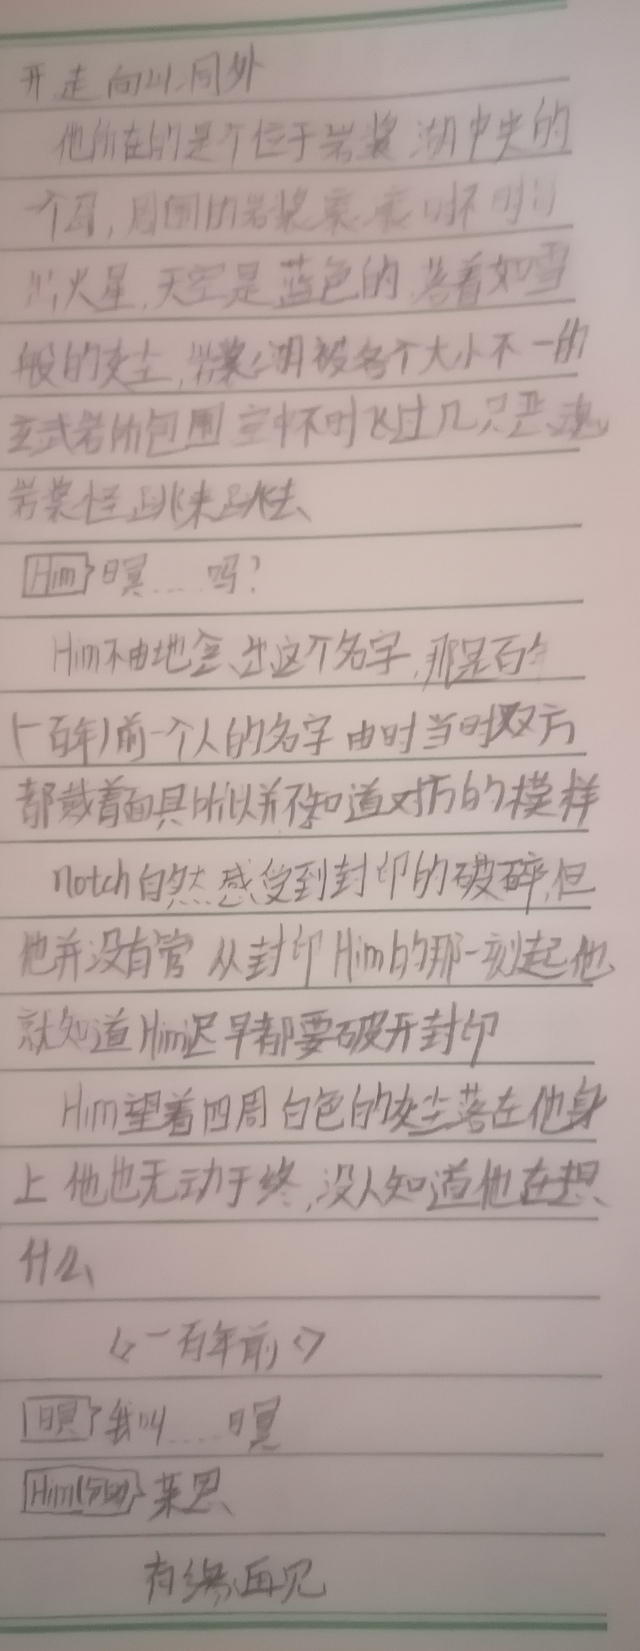 开走向山洞外
他所在的是个位于岩浆湖中央的
个岛,周围的岩浆 时不时
出火星,天空是蓝色的,落着如雪
般的灰尘,岩浆湖被各个大小不一的
玄武岩所包围 空中不时飞过几只恶魂
岩浆怪跳来跳去
[Him}暝....吗?
Him不由地念出这个名字,那是百年
(一百年)前一个人的名字 由时当时双方
都戴着面具所以并不知道对方的模样
notch自然感受到封印的破碎,但
他并没有管 从封印Him的那一刻起他
就知道Him迟早都要破开封印
Him望着四周白色的灰尘落在他身
上 他也无动于终,没人知道他在想
什么
<一百年前<>
[暝}我叫....暝
[Him(分身)}莱恩
有缘再见